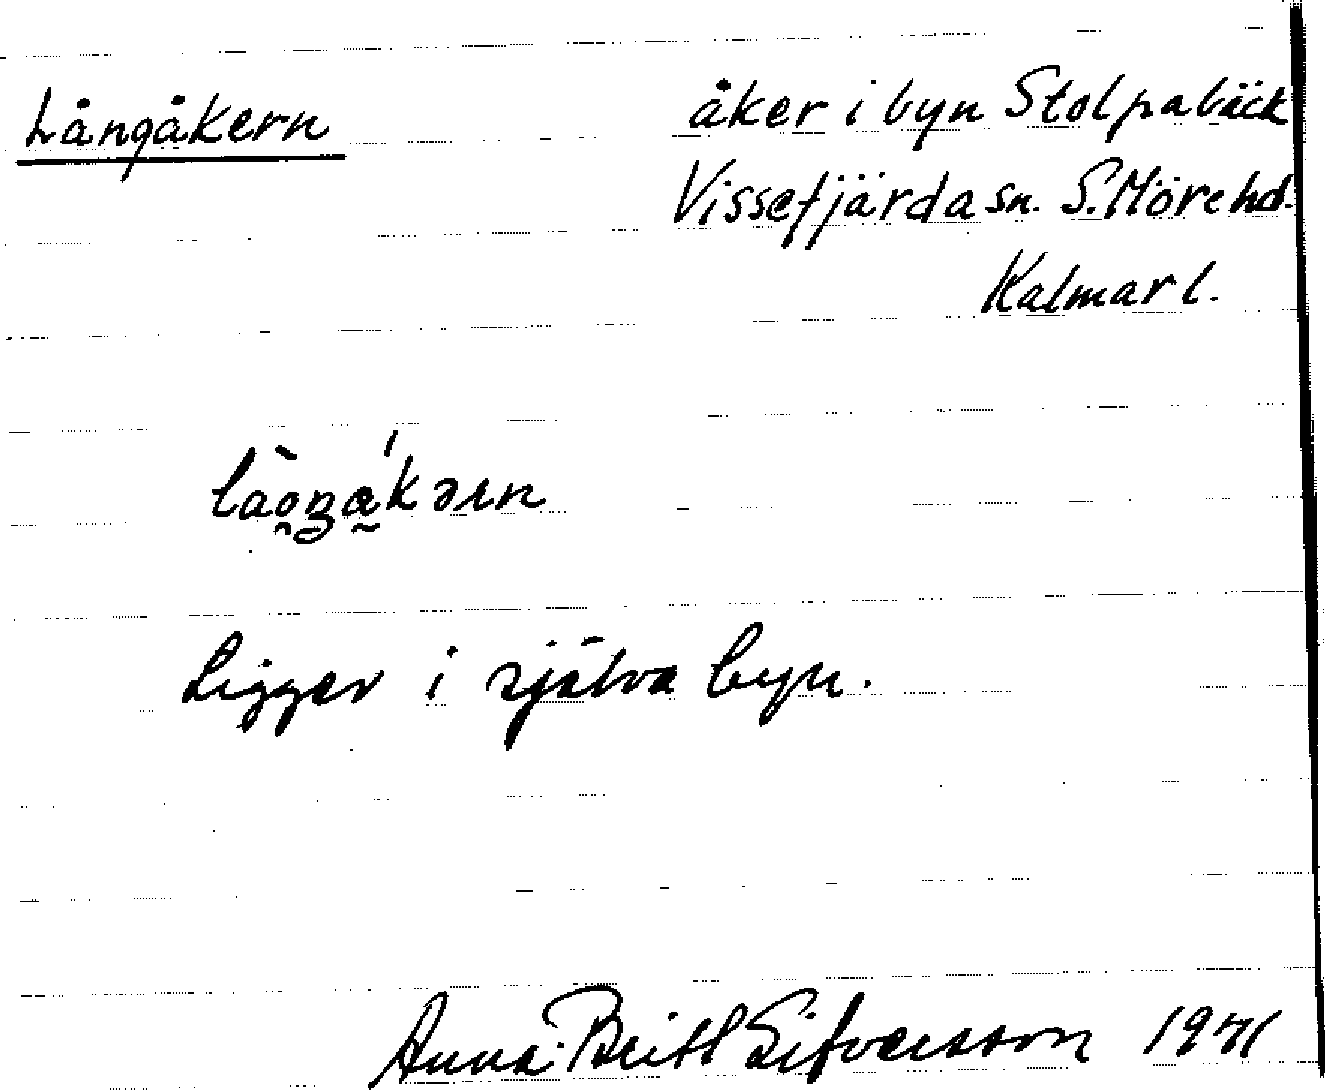 Långåkern
åker i byn Stolpabäck
Vissefjärda sn. S. Möre hd.
Kalmar l.
Ligger i själva byn.
Anna-Britt Sifversson 1941